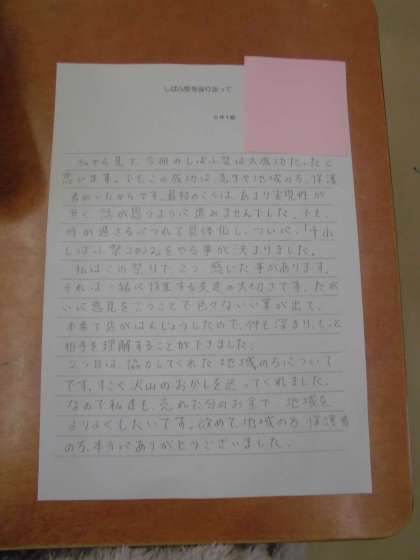 しばふ祭を振り返って
6年1組
私から見て、今回のしばふ祭は大成功だったと
思います。でもこの成功は、先生や地域の方、保護
者がいたからです。最初のころは、あまり実現性が
なく、話が思うように進みませんでした。でも、
時が過ぎるにつれて具体化し、ついに、「千小
しばふ祭2022」をやる事が決まりました。
私はこの祭りで、2つ、感じた事があります。
それは、一緒に作業する友達の大切さです。たが
いに意見を言うことで色々ないい案が出て、
本番で店がはんじょうしたので、仲も深まり、もっと
相手を理解することができました。
2つ目は、協力してくれた地域の方について
です。すごく、沢山のおかしを送ってくれました。
なので私達も、売れた分のお金で、地域を
よりよくしたいです。改めて、地域の方、保護者
の方、本当にありがとうございました。